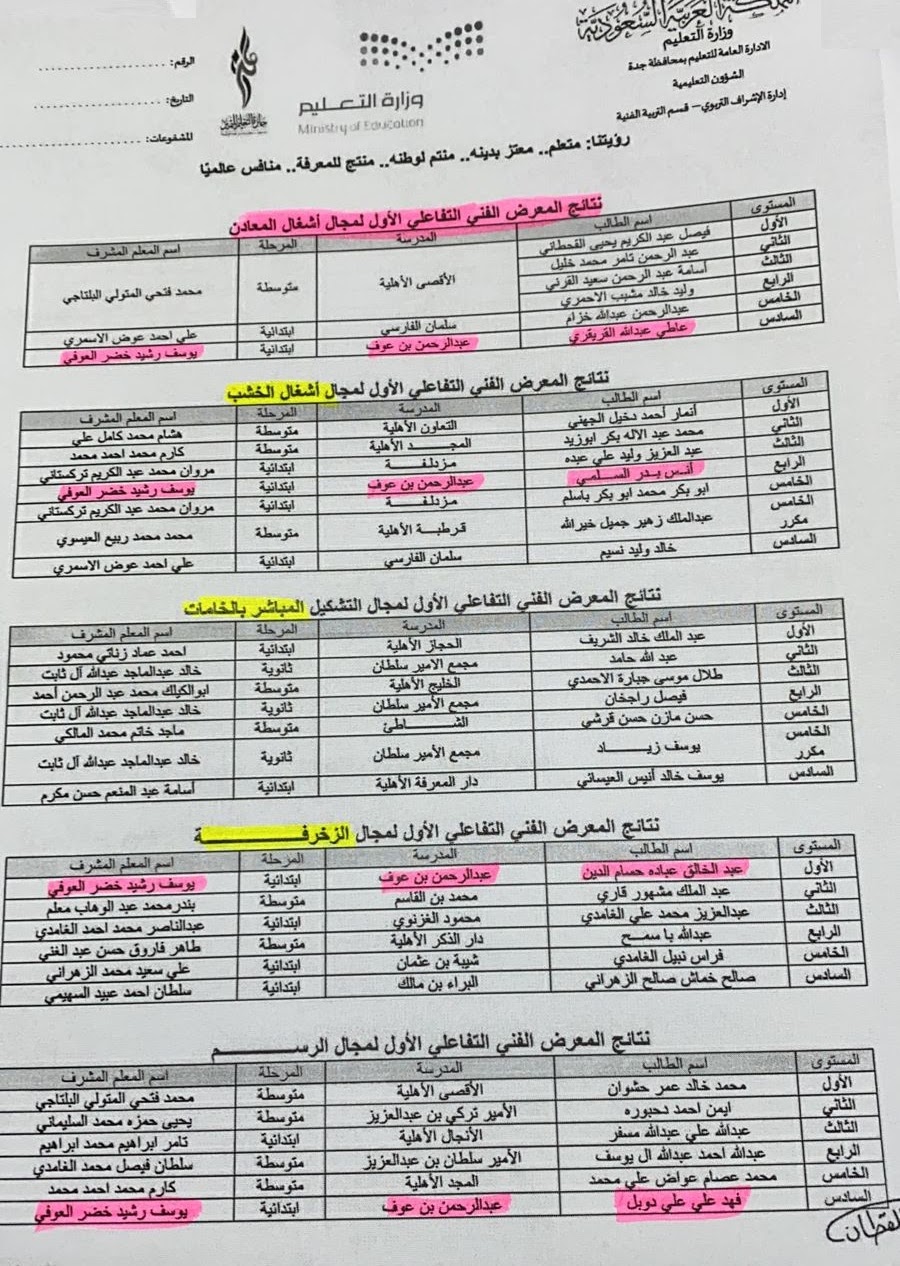 المملكة العربية السعودية
وزارة التعليم
الادارة العامة للتعليم بمحافظة جدة
الشؤون التعليمية
إدارة الإشراف التربوي - قسم التربية الفنية
وزارة التعليم
Ministry of Education
الرقم:
التاريخ:
المشفوعات:
رؤيتنا: متعلم.. معتز بدينه.. منتم لوطنه.. منتج للمعرفة.. منافس عالميًا
نتائج المعرض الفني التفاعلي الأول لمجال أشغال المعادن
المستوى اسم الطالب المدرسة المرحلة اسم المعلم المشرف
الأول فيصل عبد الكريم يحيى القحطاني الأقصى الأهلية متوسطة محمد فتحي المتولي البلتاجي
الثاني عبد الرحمن تامر محمد خليل
الثالث أسامة عبد الرحمن سعيد القرني
الرابع وليد خالد مشبب الاحمري
الخامس عبدالرحمن عبدالله خزام سلمان الفارسي ابتدائية علي احمد عوض الاسمري
السادس عاطي عبدالله القريقري عبدالرحمن بن عوف ابتدائية يوسف رشيد خضر العوفي
نتائج المعرض الفني التفاعلي الأول لمجال أشغال الخشب
المستوى اسم الطالب المدرسة المرحلة اسم المعلم المشرف
الأول أنمار أحمد دخيل الجهني التعاون الأهلية متوسطة هشام محمد كامل علي
الثاني محمد عبد الاله بكر ابوزيد المجد الأهلية متوسطة كارم محمد احمد محمد
الثالث عبد العزيز وليد علي عبده مزدلفة ابتدائية مروان محمد عبد الكريم تركستاني
الرابع أنس بدر السلمي عبدالرحمن بن عوف ابتدائية يوسف رشيد خضر العوفي
الخامس ابو بكر محمد ابو بكر باسلم مزدلفة ابتدائية مروان محمد عبد الكريم تركستاني
الخامس مكرر عبدالملك زهير جميل خيرالله قرطبة الأهلية متوسطة محمد محمد ربيع العيسوي
السادس خالد وليد نسيم سلمان الفارسي ابتدائية علي احمد عوض الاسمري
نتائج المعرض الفني التفاعلي الأول لمجال التشكيل المباشر بالخامات
المستوى اسم الطالب المدرسة المرحلة اسم المعلم المشرف
الأول عبد الملك خالد الشريف الحجاز الأهلية ابتدائية احمد عماد زناتي محمود
الثاني عبد الله حامد مجمع الامير سلطان ثانوية خالد عبدالماجد عبدالله آل ثابت
الثالث طلال موسى جبارة الاحمدي الخليج الأهلية متوسطة ابوالكيلك محمد عبد الرحمن أحمد
الرابع فيصل راجخان مجمع الأمير سلطان ثانوية خالد عبدالماجد عبدالله آل ثابت
الخامس حسن مازن حسن قرشي الشاطئ متوسطة ماجد خاتم محمد المالكي
الخامس مكرر يوسف زياد مجمع الأمير سلطان ثانوية خالد عبدالماجد عبدالله آل ثابت
السادس يوسف خالد أنيس العيساني دار المعرفة الأهلية ابتدائية أسامة عبد المنعم حسن مكرم
نتائج المعرض الفني التفاعلي الأول لمجال الزخرفة
المستوى اسم الطالب المدرسة المرحلة اسم المعلم المشرف
الأول عبد الخالق عباده حسام الدين عبدالرحمن بن عوف ابتدائية يوسف رشيد خضر العوفي
الثاني عبد الملك مشهور قاري محمد بن القاسم متوسطة بندرمحمد عبد الوهاب معلم
الثالث عبدالعزيز محمد علي الغامدي محمود الغزنوي ابتدائية عبدالناصر محمد احمد الغامدي
الرابع عبدالله با سمح دار الذكر الأهلية متوسطة طاهر فاروق حسن عبد الغني
الخامس فراس نبيل الغامدي شيبة بن عثمان ابتدائية علي سعيد محمد الزهراني
السادس صالح خماش صالح الزهراني البراء بن مالك ابتدائية سلطان احمد عبيد السهيمي
نتائج المعرض الفني التفاعلي الأول لمجال الرسم
المستوى اسم الطالب المدرسة المرحلة اسم المعلم المشرف
الأول محمد خالد عمر حشوان الأقصى الأهلية متوسطة محمد فتحي المتولي البلتاجي
الثاني ايمن احمد دحبوره الأمير تركي بن عبدالعزيز متوسطة يحيى حمزه محمد السليماني
الثالث عبدالله علي عبدالله مسفر الأنجال الأهلية ابتدائية تامر ابراهيم محمد ابراهيم
الرابع عبدالله احمد عبدالله ال يوسف الأمير سلطان بن عبدالعزيز متوسطة سلطان فيصل محمد الغامدي
الخامس محمد عصام عواض علي محمد المجد الأهلية متوسطة كارم محمد احمد محمد
السادس فهد علي علي دوبل عبدالرحمن بن عوف ابتدائية يوسف رشيد خضر العوفي
القطان